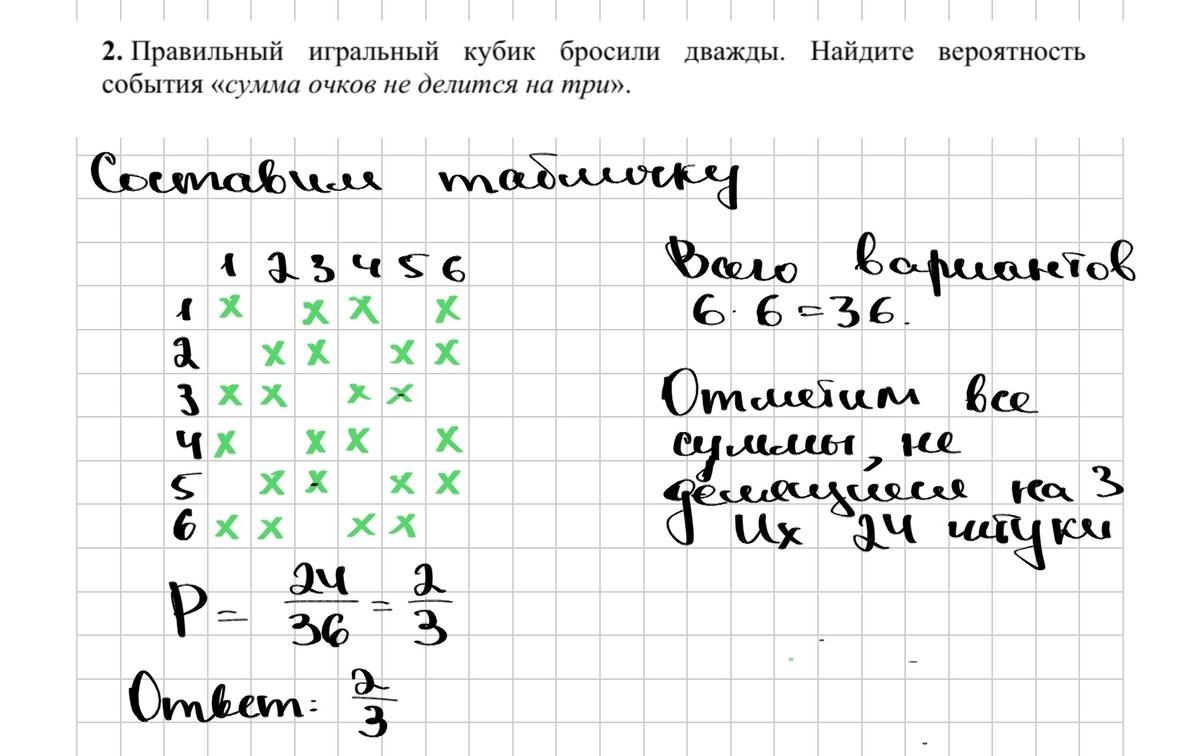 2. Правильный игральный кубик бросили дважды. Найдите вероятность
события «сумма очков не делится на три».
Составим табличку
1 2 3 4 5 6
1 x x x x
2 x x x x
3 x x x x
4 x x x x
5 x x x x
6 x x x x
Всего вариантов
6 · 6 = 36.
Отметим все
суммы, не
делящиеся на 3
Их 24 штуки
P = 24/36 = 2/3
Ответ: 2/3